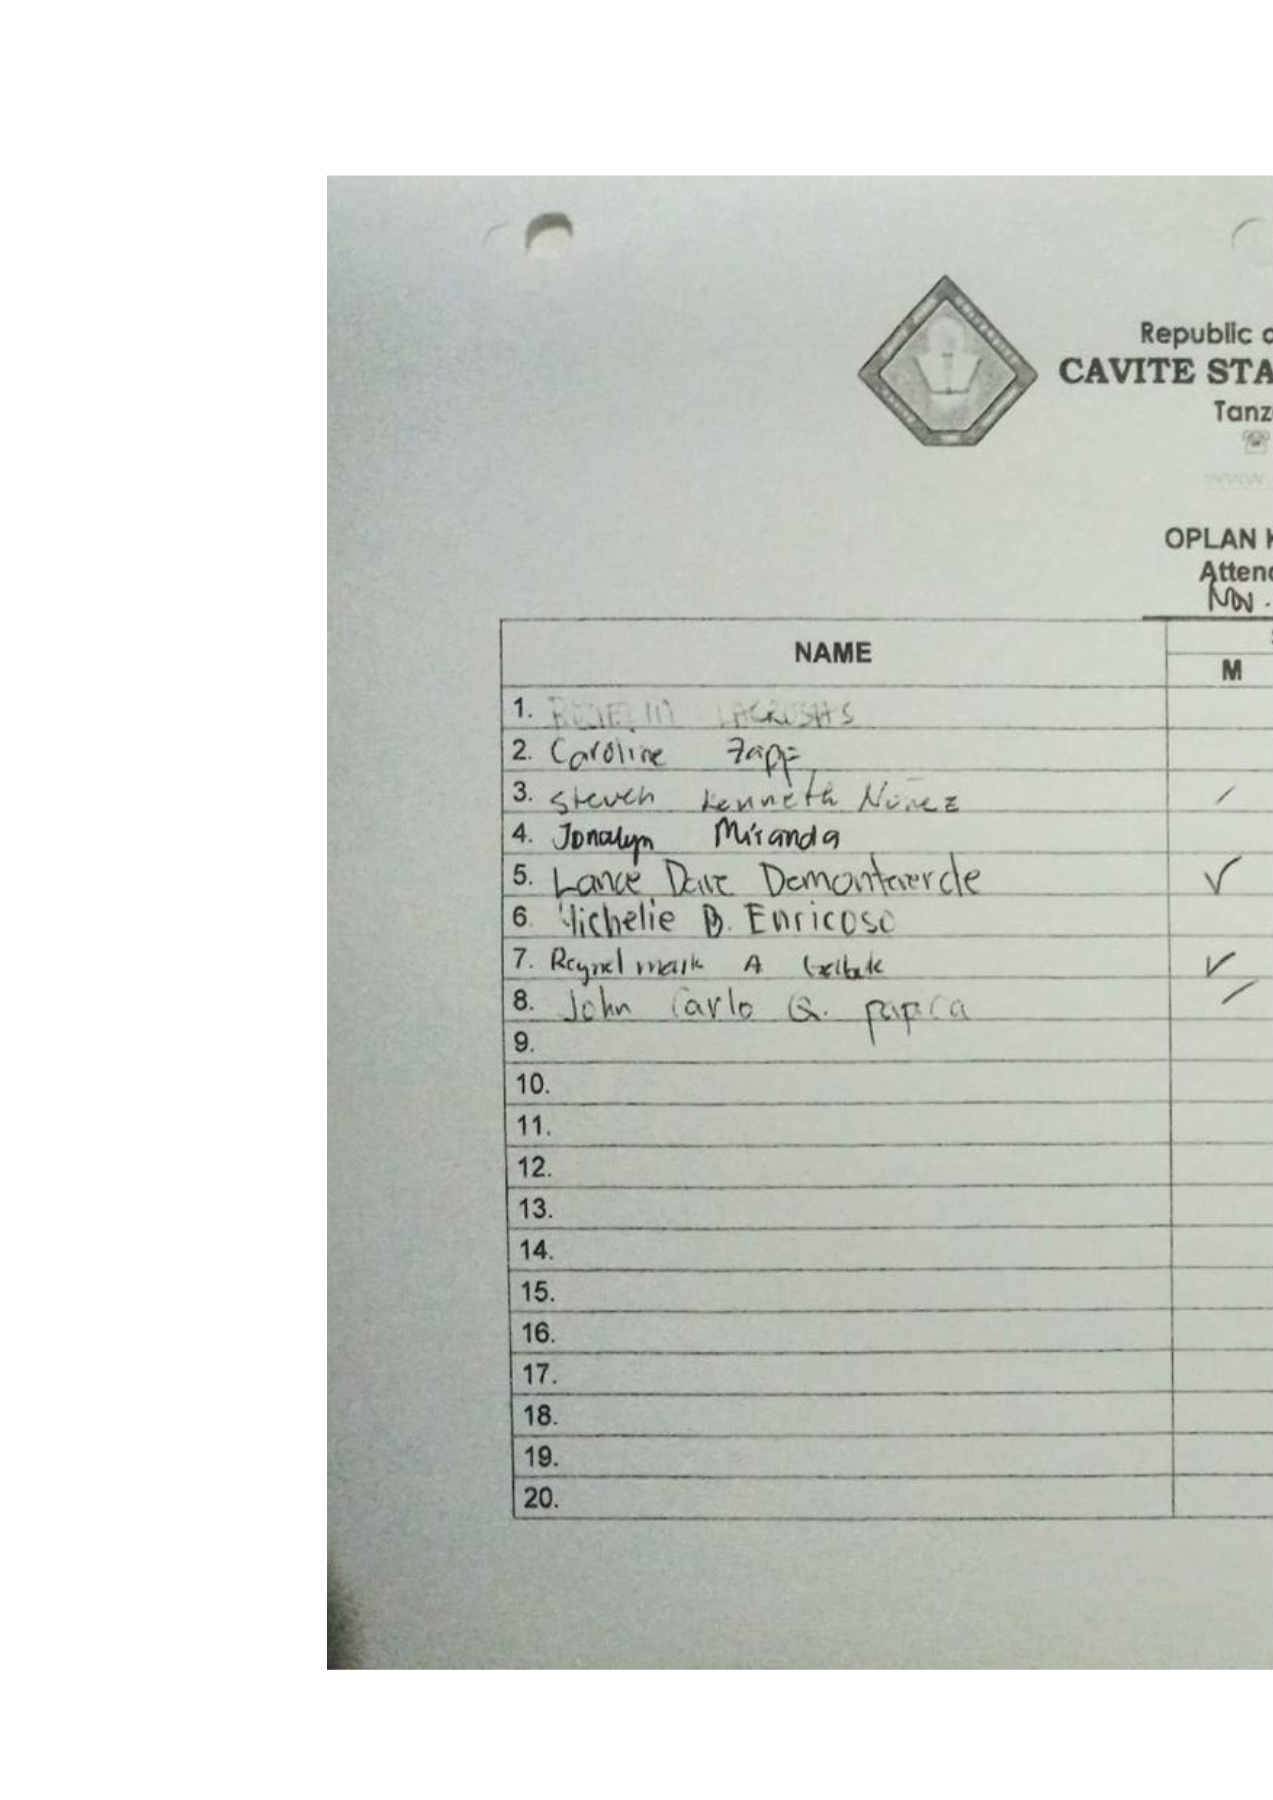 Republic
CAVITE STA
Tanz
OPLAN
Atten
NOV.
NAME
M
1.
2. Caroline
3. Steven Kenneth Nuñez
4. Jonalyn Miranda
5. Lance Dave Demontaverde
6. Michelie B. Enricoso
7. Reynel mark A
8. John Carlo Q. papica
9.
10.
11.
12.
13.
14.
15.
16.
17.
18.
19.
20.